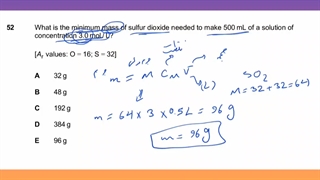 52 What is the minimum mass of sulfur dioxide needed to make 500 mL of a solution of
concentration 3.0 mol/L?
[Ar values: O = 16; S = 32]
A 32 g
B 48 g
C 192 g
D 384 g
E 96 g
m = M C V
(L)
SO2
M = 32 + 32 = 64
m = 64 x 3 x 0.5 L = 96 g
m = 96 g